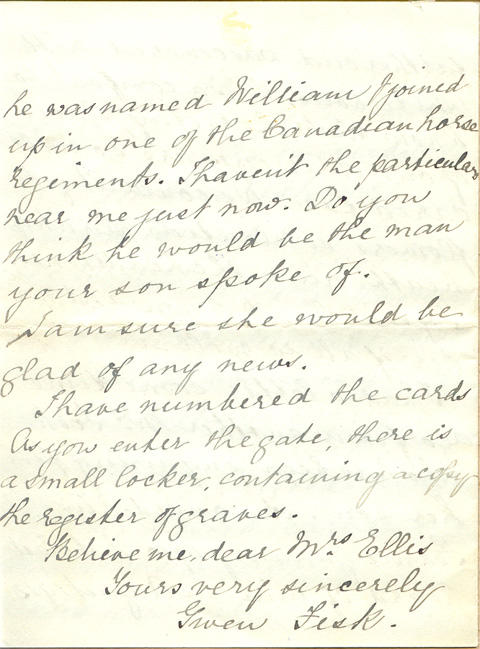 he was named William & joined
up in one of the Canadian horse
regiments. I havent the particulars
near me just now. Do you
think he would be the man
your son spoke of.
I am sure she would be
glad of any news.
I have numbered the cards
As you enter the gate, there is
a small locker, containing a copy
the register of graves.
Believe me, dear Mrs Ellis
Yours very sincerely
Gwen Fisk.